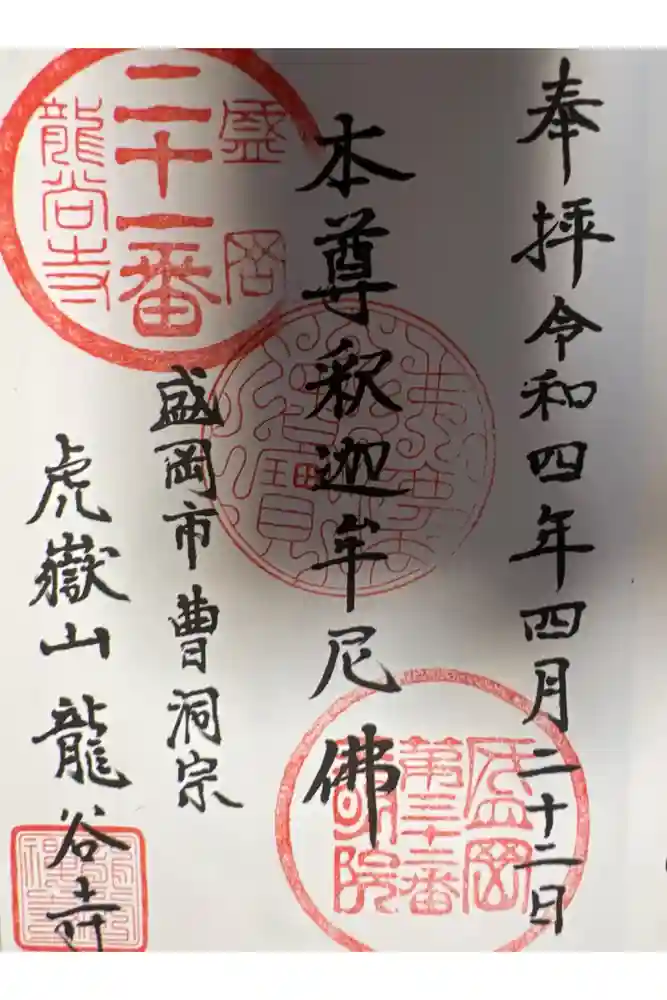 奉拝令和四年四月二十二日
本尊釈迦牟尼佛
盛岡市曹洞宗
虎嶽山龍谷寺
盛岡
二十一番
龍尚寺
三法
盛岡
第三十三番
院